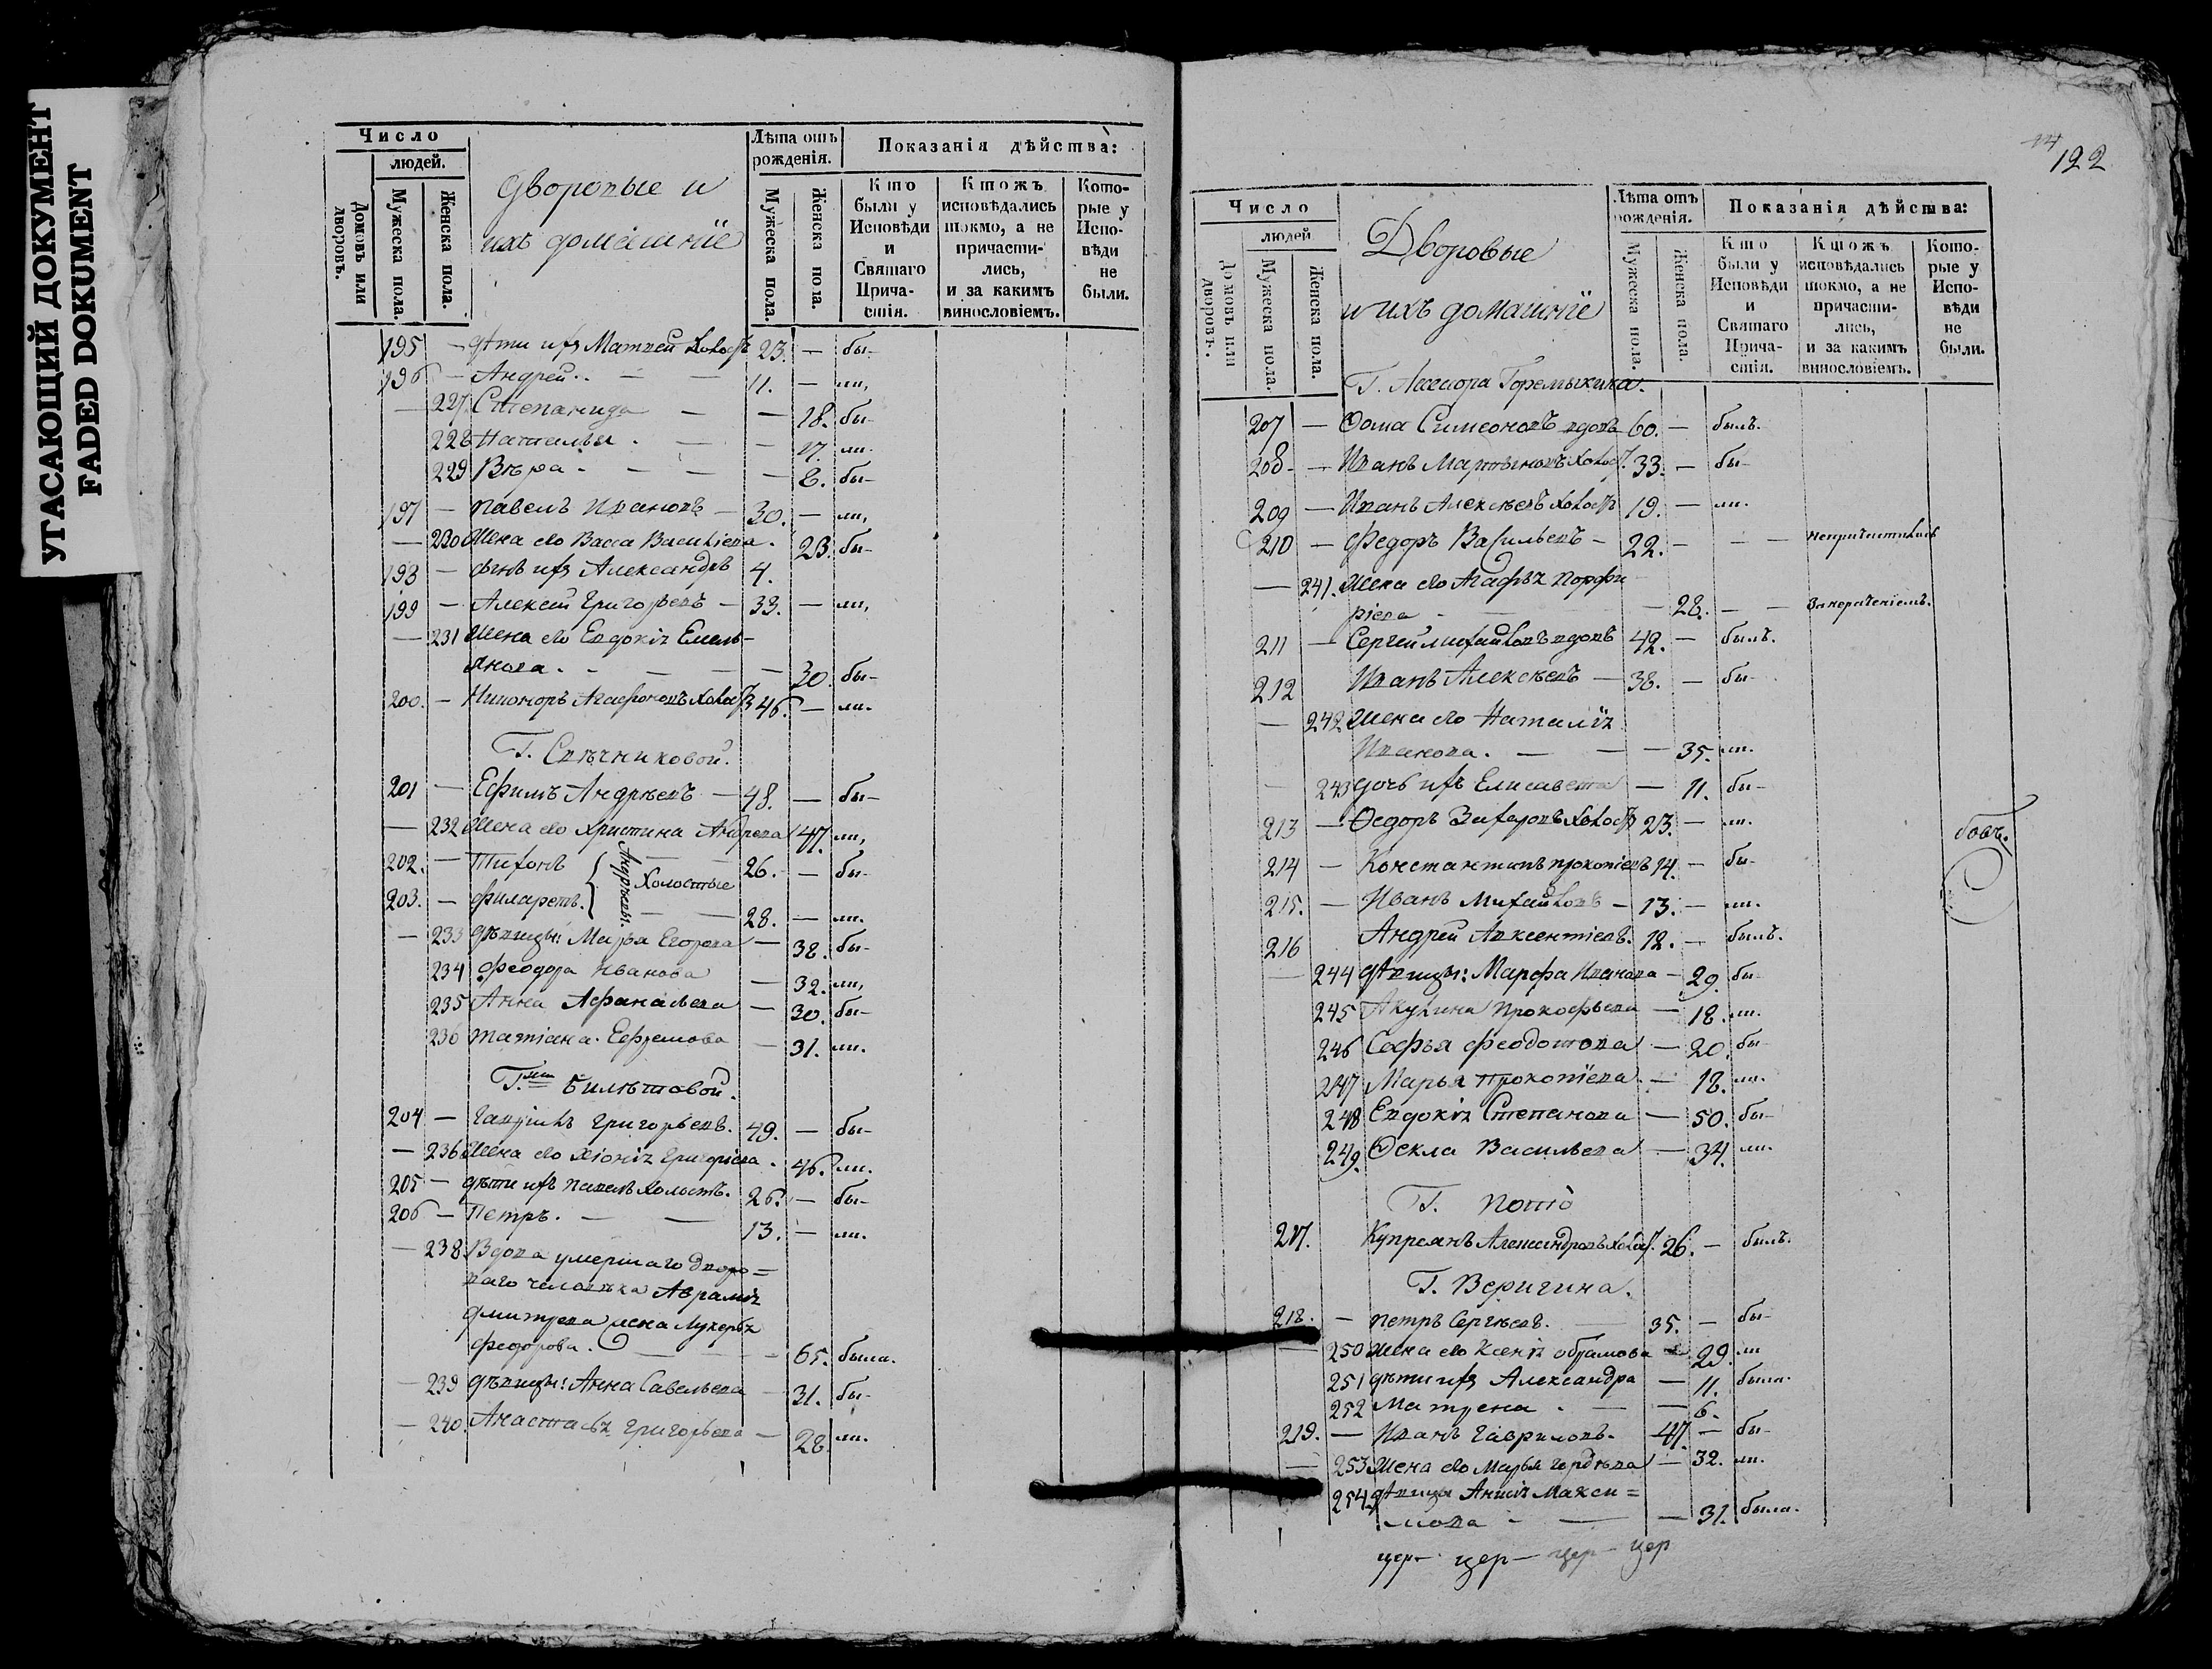 УГАСАЮЩИЙ ДОКУМЕНТ
FADED DOKUMENT
Число
людей.
Домовъ или дворовъ.
Мужеска пола.
Женска пола.
Дворовые и
ихъ домашніе
Лѣта отъ рожденія.
Мужеска пола.
Женска пола.
Показанія дѣйства:
Кто были у Исповѣди и Святаго Прича-стія.
Ктожъ исповѣдались токмо, а не причасти-лись, и за какимъ винословіемъ.
Кото-рые у Испо-вѣди не были.
195 — дѣти ихъ Матвей холостъ 23. — бы-
196 — Андрей. — — 11. — ли,
— 227 Степанида — — 18. бы-
228 Наталья. — — 17. ли.
229 Вѣра — — — 8. бы-
197 — Павелъ Ивановъ — 30. — ли,
— 230 Жена его Васса Василіева. 23. бы-
198 — сынъ ихъ Александръ 4.
199 — Алексей Григорьевъ — 33. — ли,
— 231 Жена его Евдокія Емель-
янова. — — — 30. бы-
200. — Никоноръ Агафоновъ холостъ 46. — ли.
Г. Свѣчниковой.
201 — Ефимъ Андрѣевъ — 48. — бы-
— 232 Жена его Христина Андреева 47. ли,
202. — Тихонъ Андрѣевы. Холостые 26. — бы-
203. — Филаретъ. 28. — ли.
— 233 дѣвицы: Марья Егорова — 38. бы-
234 Феодора Иванова — 32. ли,
235 Анна Афанасьева — 30. бы-
236 Татіана Ефремова — 31. ли.
Г.жи Билѣтовой.
204 — Гаврилъ Григорьевъ. 49. — бы-
— 236 Жена его Хіонія Григоріева. 46. ли.
205 — дѣти ихъ Павелъ холостъ. 26. — бы-
206 — Петръ. — — 13. — ли.
— 238 Вдова умершаго дворо=
ваго человѣка Аврамія
Дмитрева жена Лукерья
Федорова. — — 65. была.
— 239 дѣвицы: Анна Савельева — 31. бы-
— 240. Анастасія Григорьева — 28. ли.
122
Число
людей
Домовъ или дворовъ.
Мужеска пола.
Женска пола.
Дворовые
и ихъ домашніе
Лѣта отъ рожденія.
Мужеска пола.
Женска пола.
Показанія дѣйства:
Кто были у Исповѣди и Святаго Прича-стія.
Ктожъ исповѣдались токмо, а не причасти-лись, и за какимъ винословіемъ.
Кото-рые у Испо-вѣди не были.
Г. Асесора Горемыкина.
207 — Ѳома Симеоновъ вдовъ 60. — былъ.
208 — Иванъ Мартыновъ холост. 33. — бы-
209 — Иванъ Алексѣевъ холостъ 19. — ли.
210 — Федоръ Васильевъ — 22. — — — непричастились
— 241. Жена его Агафья Порфи
ріева — — 28. — — За нерачѣніемъ.
211 — Сергей Михайловъ вдовъ 42. — былъ.
212 Иванъ Алексѣевъ — 38. — бы-
— 242 Жена его Наталія
Иванова. — — — 35. ли.
— 243 дочь ихъ Елисавета — 11. бы-
213 — Ѳедоръ Захаровъ холостъ 23. — ли.
214 — Константинъ Прокопіевъ 14. — бы-
215. — Иванъ Михайловъ — 13. — ли.
216 Андрей Авксентіевъ. 12. — былъ.
— 244 дѣвицы: Марфа Иванова — 29. бы-
245 Акулина Прокофьева — 18. ли.
246 Софья Феодотова — 20. бы-
247 Марья Прокопіева — 18. ли.
248 Евдокія Степанова — 50. бы-
249. Ѳекла Васильева — 34. ли.
Г. Потіо
217. Купреянъ Александровъ холост. 26. — былъ.
Г. Веригина.
218. — Петръ Сергѣевъ. — 35. — бы-
— 250 Жена его Ксенія Абрамова — 29. ли
251 дѣти ихъ Александра — 11. была.
252 Матрена. — — 6.
219. — Иванъ Гавриловъ. 47. — бы-
— 253 Жена его Марья Гордѣева — 32. ли.
254 дѣвица Анисія Макси=
мова — — 31. была.
цер- цер- цер- цер